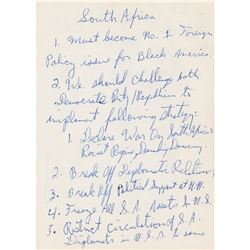 South Africa
1. Must become No. 1 Foreign
Policy issue for Black America.
2. We should challenge both
Democratic Party/Republican to
implement following strategy:
1. Declare War On South Africa's
Racist Regime,
2. Break Off Diplomatic Relations
3. Break Off Political Support at U.N.
4. Freeze All S.A. Assets In U.S.
5. Restrict Circulation of S.A.
Diplomats in U.S.A. to same